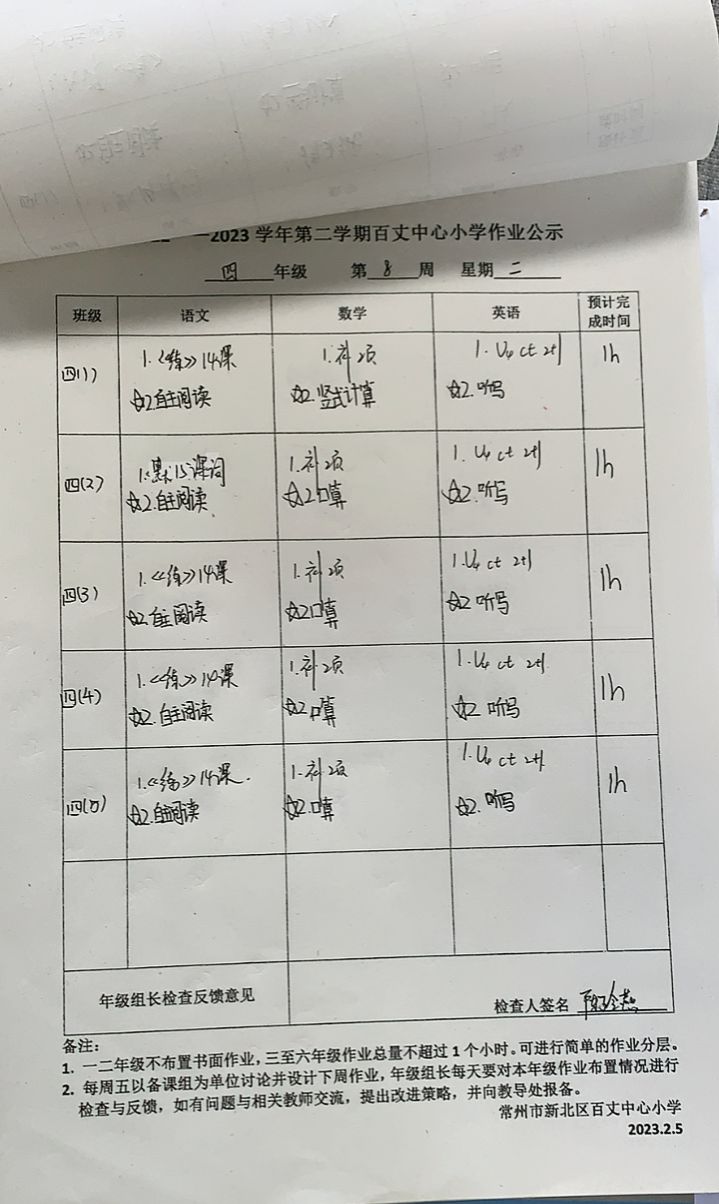 —2023 学年第二学期百丈中心小学作业公示
四 年级 第 8 周 星期 二
班级 语文 数学 英语 预计完成时间
四(1) 1.《练》14课 1.补2项 1. U4 ct 2+1 1h
☆2.自主阅读 ☆2.竖式计算 ☆2.听写
四(2) 1.默15课词 1.补2项 1. U4 ct 2+1 1h
☆2.自主阅读 ☆2.口算 ☆2.听写
四(3) 1.《练》14课 1.补2项 1. U4 ct 2+1 1h
☆2.自主阅读 ☆2.口算 ☆2.听写
四(4) 1.《练》14课 1.补2项 1. U4 ct 2+1 1h
☆2.自主阅读 ☆2.口算 ☆2.听写
四(5) 1.《练》14课. 1.补2项 1. U4 ct 2+1 1h
☆2.自主阅读 ☆2.口算 ☆2.听写
年级组长检查反馈意见 检查人签名
备注:
1. 一二年级不布置书面作业，三至六年级作业总量不超过 1 个小时。可进行简单的作业分层。
2. 每周五以备课组为单位讨论并设计下周作业，年级组长每天要对本年级作业布置情况进行
检查与反馈，如有问题与相关教师交流，提出改进策略，并向教导处报备。
常州市新北区百丈中心小学
2023.2.5